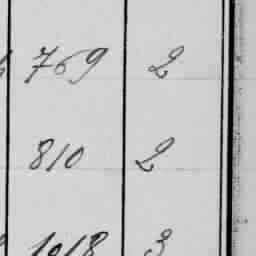 769 2
810 2
1018 3